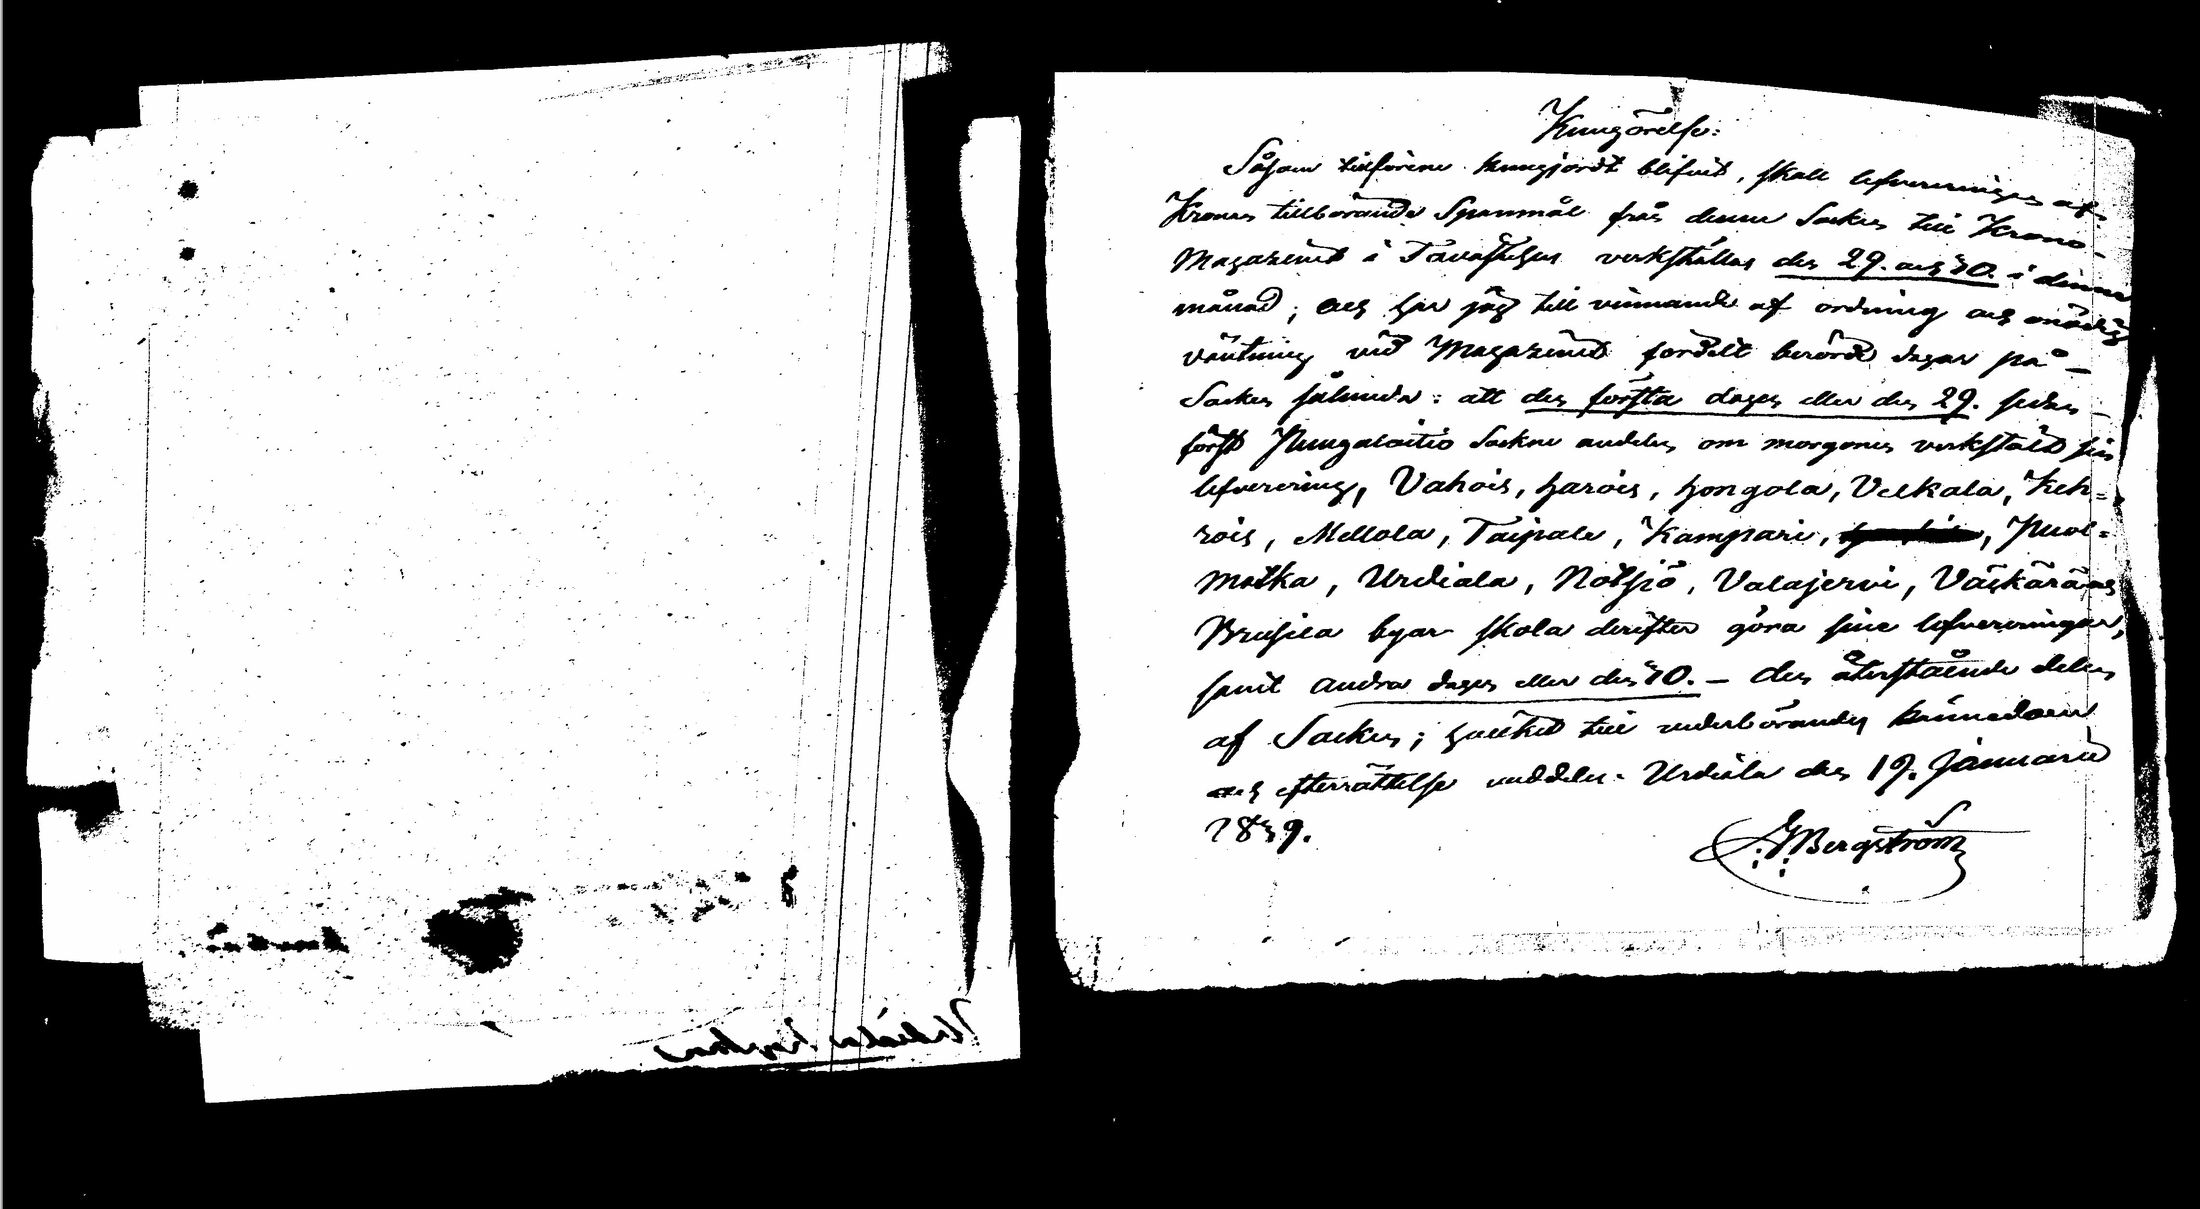 Kungörelse:
Såsom tillförene kungjordt blifvit, skall lefvereringen af
Kronan tillhörande Spanmål från denne Socken till Krono
Magazinet i Tavastehus verkställas den 29. och 30. i denne
månad; och har jag till vinnande af ordning och onödig
väntning vid Magazinet fördelt berörde dagar på
Socken sålunda: att den första dagen eller den 29. sedan
först Nungalaitio Sockne andelen om morgonen verkstält sin
lefverering, Vahois, Harois, Hongola, Velkala, Keh=
rois, Mellola, Taipale, Kampari, Nuol=
motka, Urdiala, Notsjö, Valajervi, Väskärä och
Brusila byar skola derefter göra sine lefvereringar,
samt andra dagen eller den 30. – den återstående delen
af Socken; hvilket till vederbörandes kännedom
och efterrättelse meddelas. Urdiala den 19. Januarii
1839.
Bergström
Urdiala Kyrkas